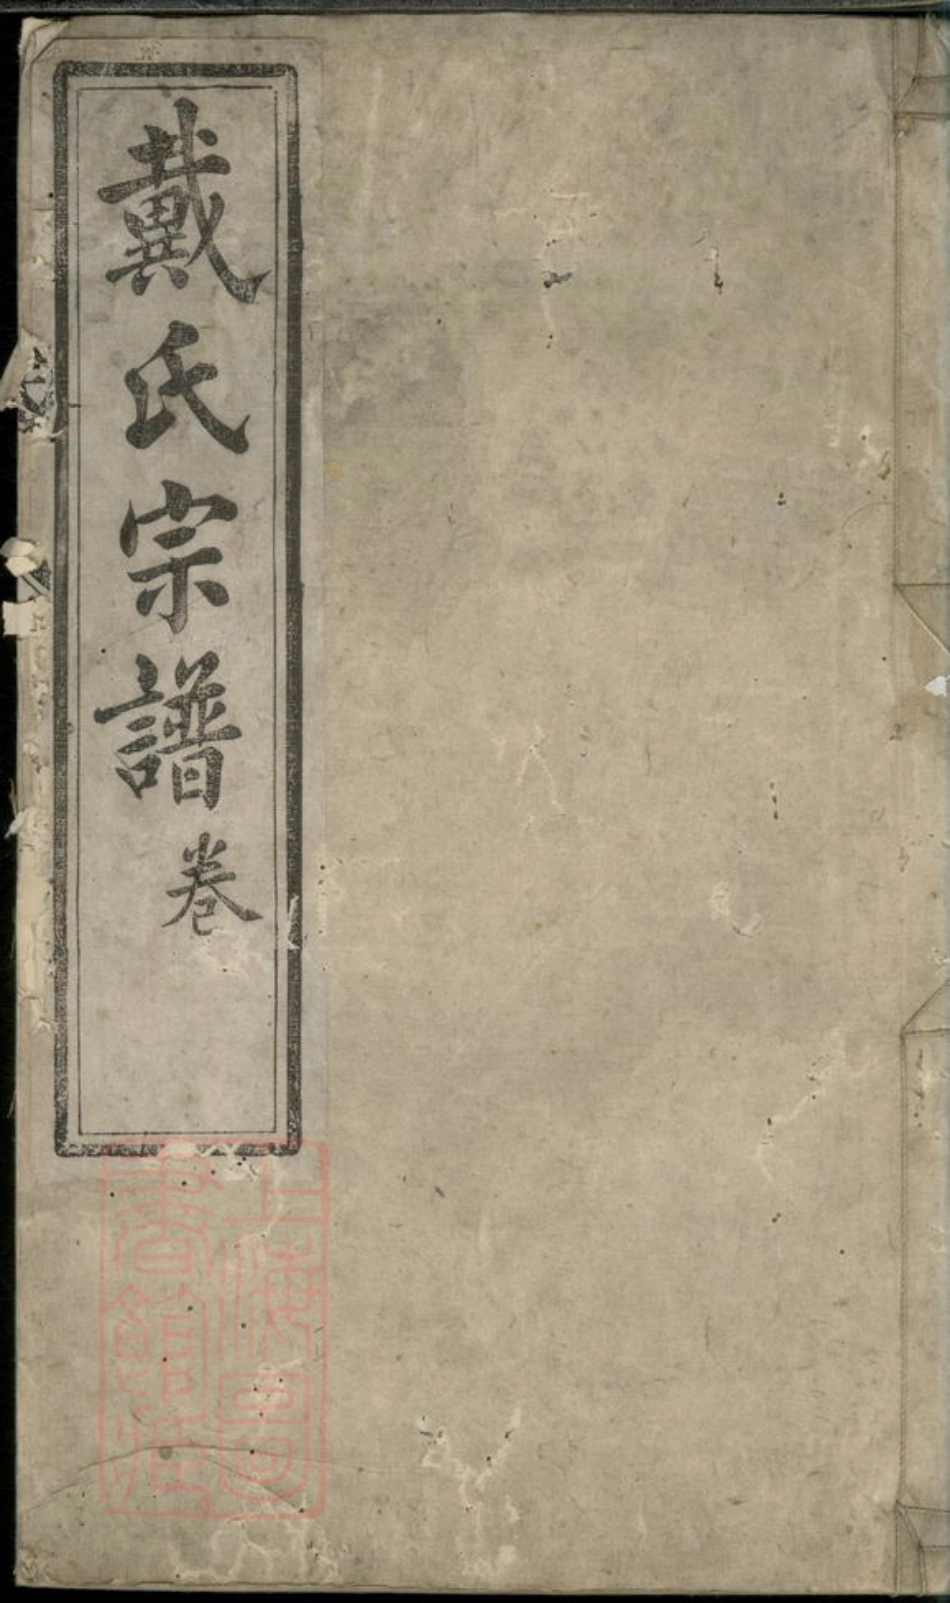 戴氏宗譜卷
上海圖
書館藏